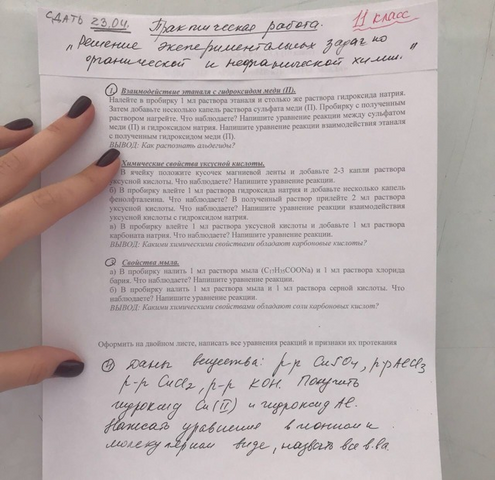 СДАТЬ 23.04. Практическая работа. 11 класс
"Решение экспериментальных задач по
органической и неорганической химии."
1 Взаимодействие этаналя с гидроксидом меди (II).
Налейте в пробирку 1 мл раствора этаналя и столько же раствора гидроксида натрия.
Затем добавьте несколько капель раствора сульфата меди (II). Пробирку с полученным
раствором нагрейте. Что наблюдаете? Напишите уравнение реакции между сульфатом
меди (II) и гидроксидом натрия. Напишите уравнение реакции взаимодействия этаналя
с полученным гидроксидом меди (II).
ВЫВОД: Как распознать альдегиды?
Химические свойства уксусной кислоты.
В ячейку положите кусочек магниевой ленты и добавьте 2-3 капли раствора
уксусной кислоты. Что наблюдаете? Напишите уравнение реакции.
б) В пробирку влейте 1 мл раствора гидроксида натрия и добавьте несколько капель
фенолфталеина. Что наблюдаете? В полученный раствор прилейте 2 мл раствора
уксусной кислоты. Что наблюдаете? Напишите уравнение реакции взаимодействия
уксусной кислоты с гидроксидом натрия.
в) В пробирку влейте 1 мл раствора уксусной кислоты и добавьте 1 мл раствора
карбоната натрия. Что наблюдаете? Напишите уравнение реакции.
ВЫВОД: Какими химическими свойствами обладают карбоновые кислоты?
3 Свойства мыла.
а) В пробирку налить 1 мл раствора мыла (C₁₇H₃₅COONa) и 1 мл раствора хлорида
бария. Что наблюдаете? Напишите уравнение реакции.
б) В пробирку налить 1 мл раствора мыла и 1 мл раствора серной кислоты. Что
наблюдаете? Напишите уравнение реакции.
ВЫВОД: Какими химическими свойствами обладают соли карбоновых кислот?
Оформить на двойном листе, написать все уравнения реакций и признаки их протекания
4 Даны вещества: р-р CuSO₄, р-р AlCl₃
р-р CuCl₂, р-р KOH. Получить
гидроксид Cu(II) и гидроксид Al.
Написать уравнение в ионном и
молекулярном виде, назвать все в-ва.